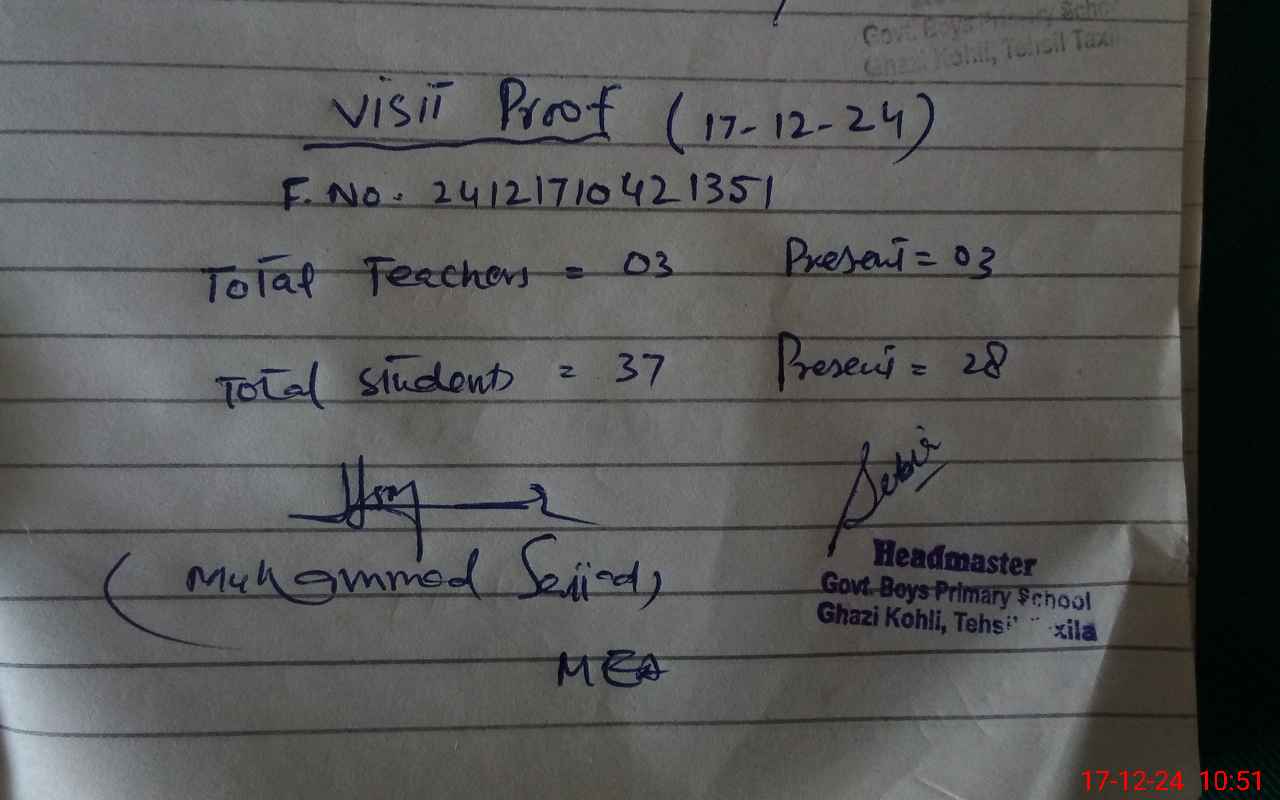 Govt. Boys Primary School
Ghazi Kohli, Tehsil Taxi
Visit Proof (17-12-24)
F. No. 24121710421351
Total Teachers = 03 Present = 03
Total Students = 37 Present = 28
(Muhammad Sajjad)
MEA
Headmaster
Govt. Boys Primary School
Ghazi Kohli, Tehsil Taxila
17-12-24 10:51